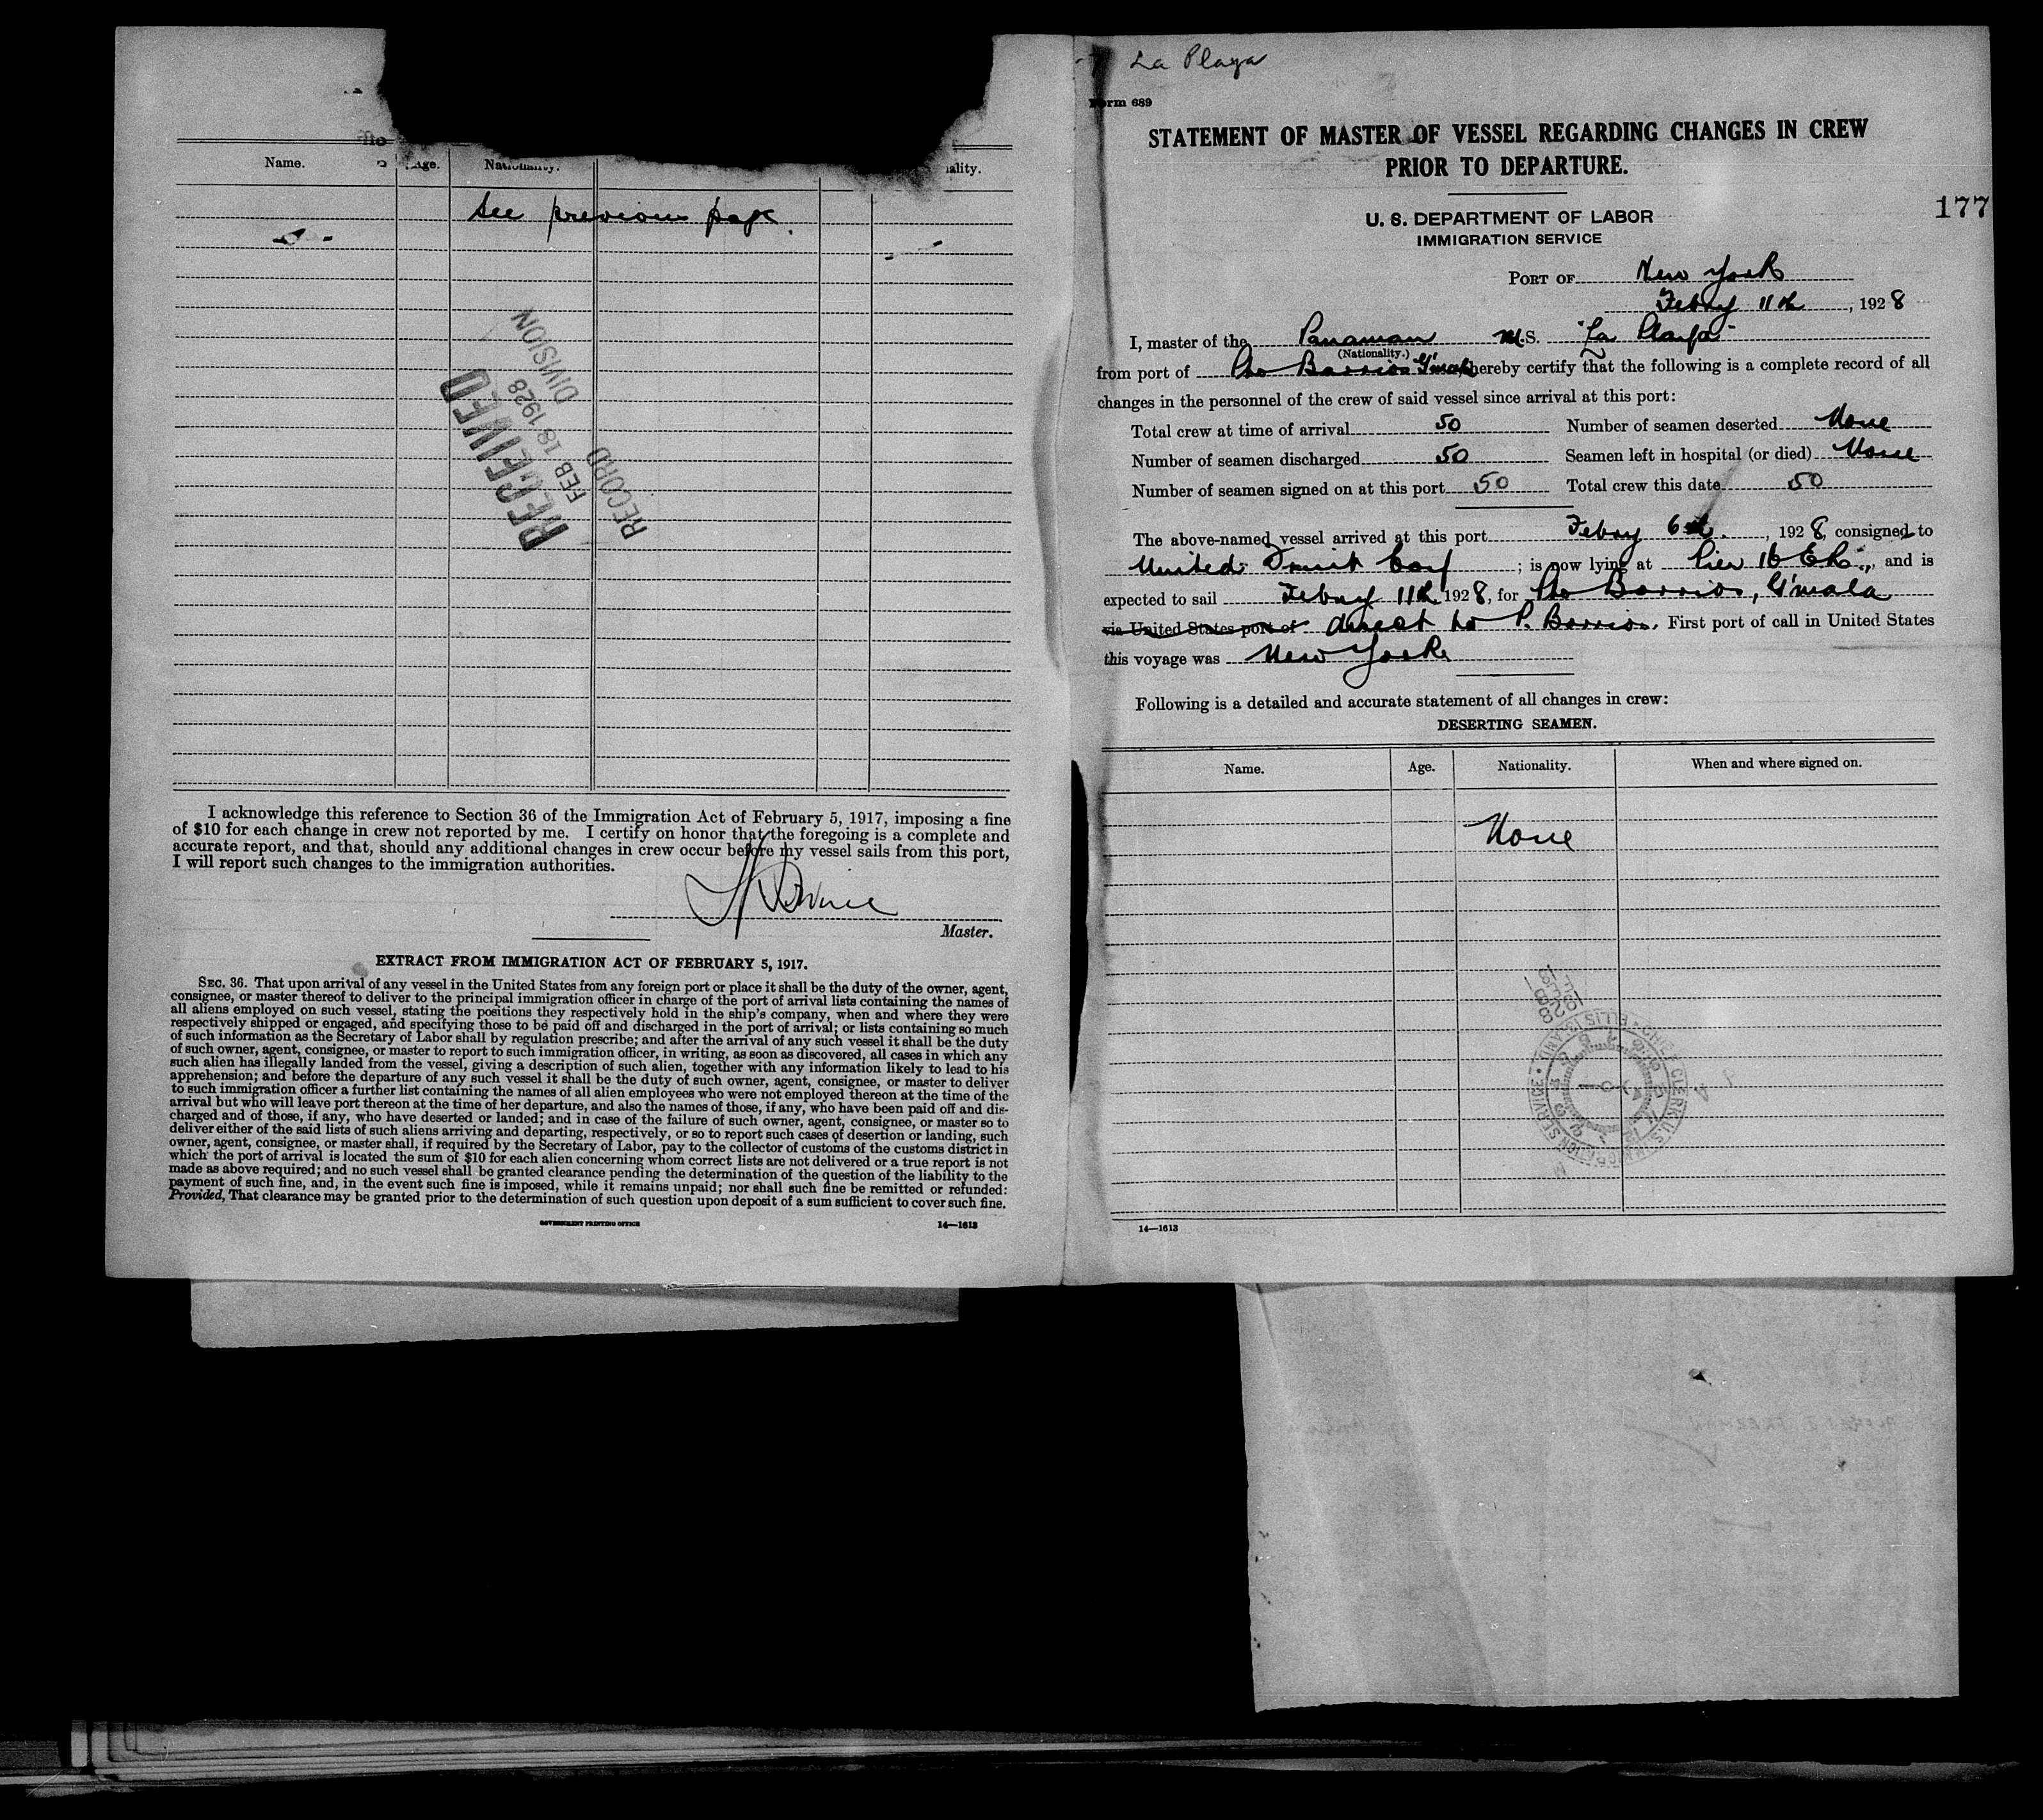 Name.
Age.
Nationality.
ality.
See previous page.
RECEIVED
FEB 18 1928
RECORD
DIVISION
I acknowledge this reference to Section 36 of the Immigration Act of February 5, 1917, imposing a fine
of $10 for each change in crew not reported by me. I certify on honor that the foregoing is a complete and
accurate report, and that, should any additional changes in crew occur before my vessel sails from this port,
I will report such changes to the immigration authorities.
Master.
EXTRACT FROM IMMIGRATION ACT OF FEBRUARY 5, 1917.
SEC. 36. That upon arrival of any vessel in the United States from any foreign port or place it shall be the duty of the owner, agent,
consignee, or master thereof to deliver to the principal immigration officer in charge of the port of arrival lists containing the names of
all aliens employed on such vessel, stating the positions they respectively hold in the ship's company, when and where they were
respectively shipped or engaged, and specifying those to be paid off and discharged in the port of arrival; or lists containing so much
of such information as the Secretary of Labor shall by regulation prescribe; and after the arrival of any such vessel it shall be the duty
of such owner, agent, consignee, or master to report to such immigration officer, in writing, as soon as discovered, all cases in which any
such alien has illegally landed from the vessel, giving a description of such alien, together with any information likely to lead to his
apprehension; and before the departure of any such vessel it shall be the duty of such owner, agent, consignee, or master to deliver
to such immigration officer a further list containing the names of all alien employees who were not employed thereon at the time of the
arrival but who will leave port thereon at the time of her departure, and also the names of those, if any, who have been paid off and dis-
charged and of those, if any, who have deserted or landed; and in case of the failure of such owner, agent, consignee, or master so to
deliver either of the said lists of such aliens arriving and departing, respectively, or so to report such cases of desertion or landing, such
owner, agent, consignee, or master shall, if required by the Secretary of Labor, pay to the collector of customs of the customs district in
which the port of arrival is located the sum of $10 for each alien concerning whom correct lists are not delivered or a true report is not
made as above required; and no such vessel shall be granted clearance pending the determination of the question of the liability to the
payment of such fine, and, in the event such fine is imposed, while it remains unpaid; nor shall such fine be remitted or refunded:
Provided, That clearance may be granted prior to the determination of such question upon deposit of a sum sufficient to cover such fine.
GOVERNMENT PRINTING OFFICE
14—1613
La Playa
Form 689
STATEMENT OF MASTER OF VESSEL REGARDING CHANGES IN CREW
PRIOR TO DEPARTURE.
U. S. DEPARTMENT OF LABOR
IMMIGRATION SERVICE
177
PORT OF New York
Febry 11th, 1928
I, master of the Panaman M.S. "La Playa"
(Nationality.)
from port of Pto Barrios G'mala, hereby certify that the following is a complete record of all
changes in the personnel of the crew of said vessel since arrival at this port:
Total crew at time of arrival 50 Number of seamen deserted None
Number of seamen discharged 50 Seamen left in hospital (or died) None
Number of seamen signed on at this port 50 Total crew this date 50
The above-named vessel arrived at this port Febry 6th, 1928, consigned to
United Fruit Coy; is now lying at Pier 16 E.R., and is
expected to sail Febry 11th 1928, for Pto Barrios, G'mala
via United States port of direct to P. Barrios. First port of call in United States
this voyage was New York
Following is a detailed and accurate statement of all changes in crew:
DESERTING SEAMEN.
Name. Age. Nationality. When and where signed on.
None
CHIEF CLERK U.S. IMMIGRATION SERVICE • ELLIS ISLAND
14—1613